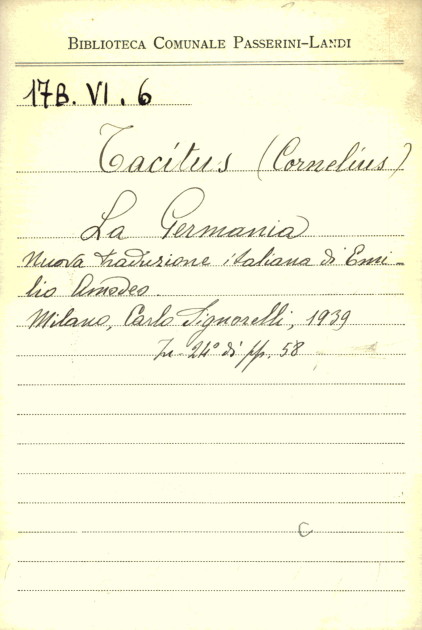 BIBLIOTECA COMUNALE PASSERINI-LANDI
17B. VI. 6
Tacitus (Cornelius)
La Germania
Nuova traduzione italiana di Emi-
lio Amedeo.
Milano, Carlo Signorelli, 1939
In 24° di pp. 58
C